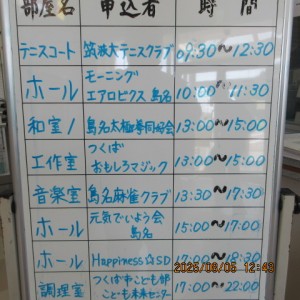 部屋名 申込者 時間
テニスコート 筑波大テニスクラブ 09:30〜12:30
ホール モーニング
エアロビクス 島名 10:00〜11:30
和室1 島名太極拳同好会 13:00〜15:00
工作室 つくば
おもしろマジック 13:00〜15:00
音楽室 島名麻雀クラブ 13:30〜17:30
ホール 元気でいよう会
島名 15:00〜17:00
ホール Happiness☆SD 17:00〜18:30
調理室 つくば市こども部
こども未来センター 17:00〜22:00